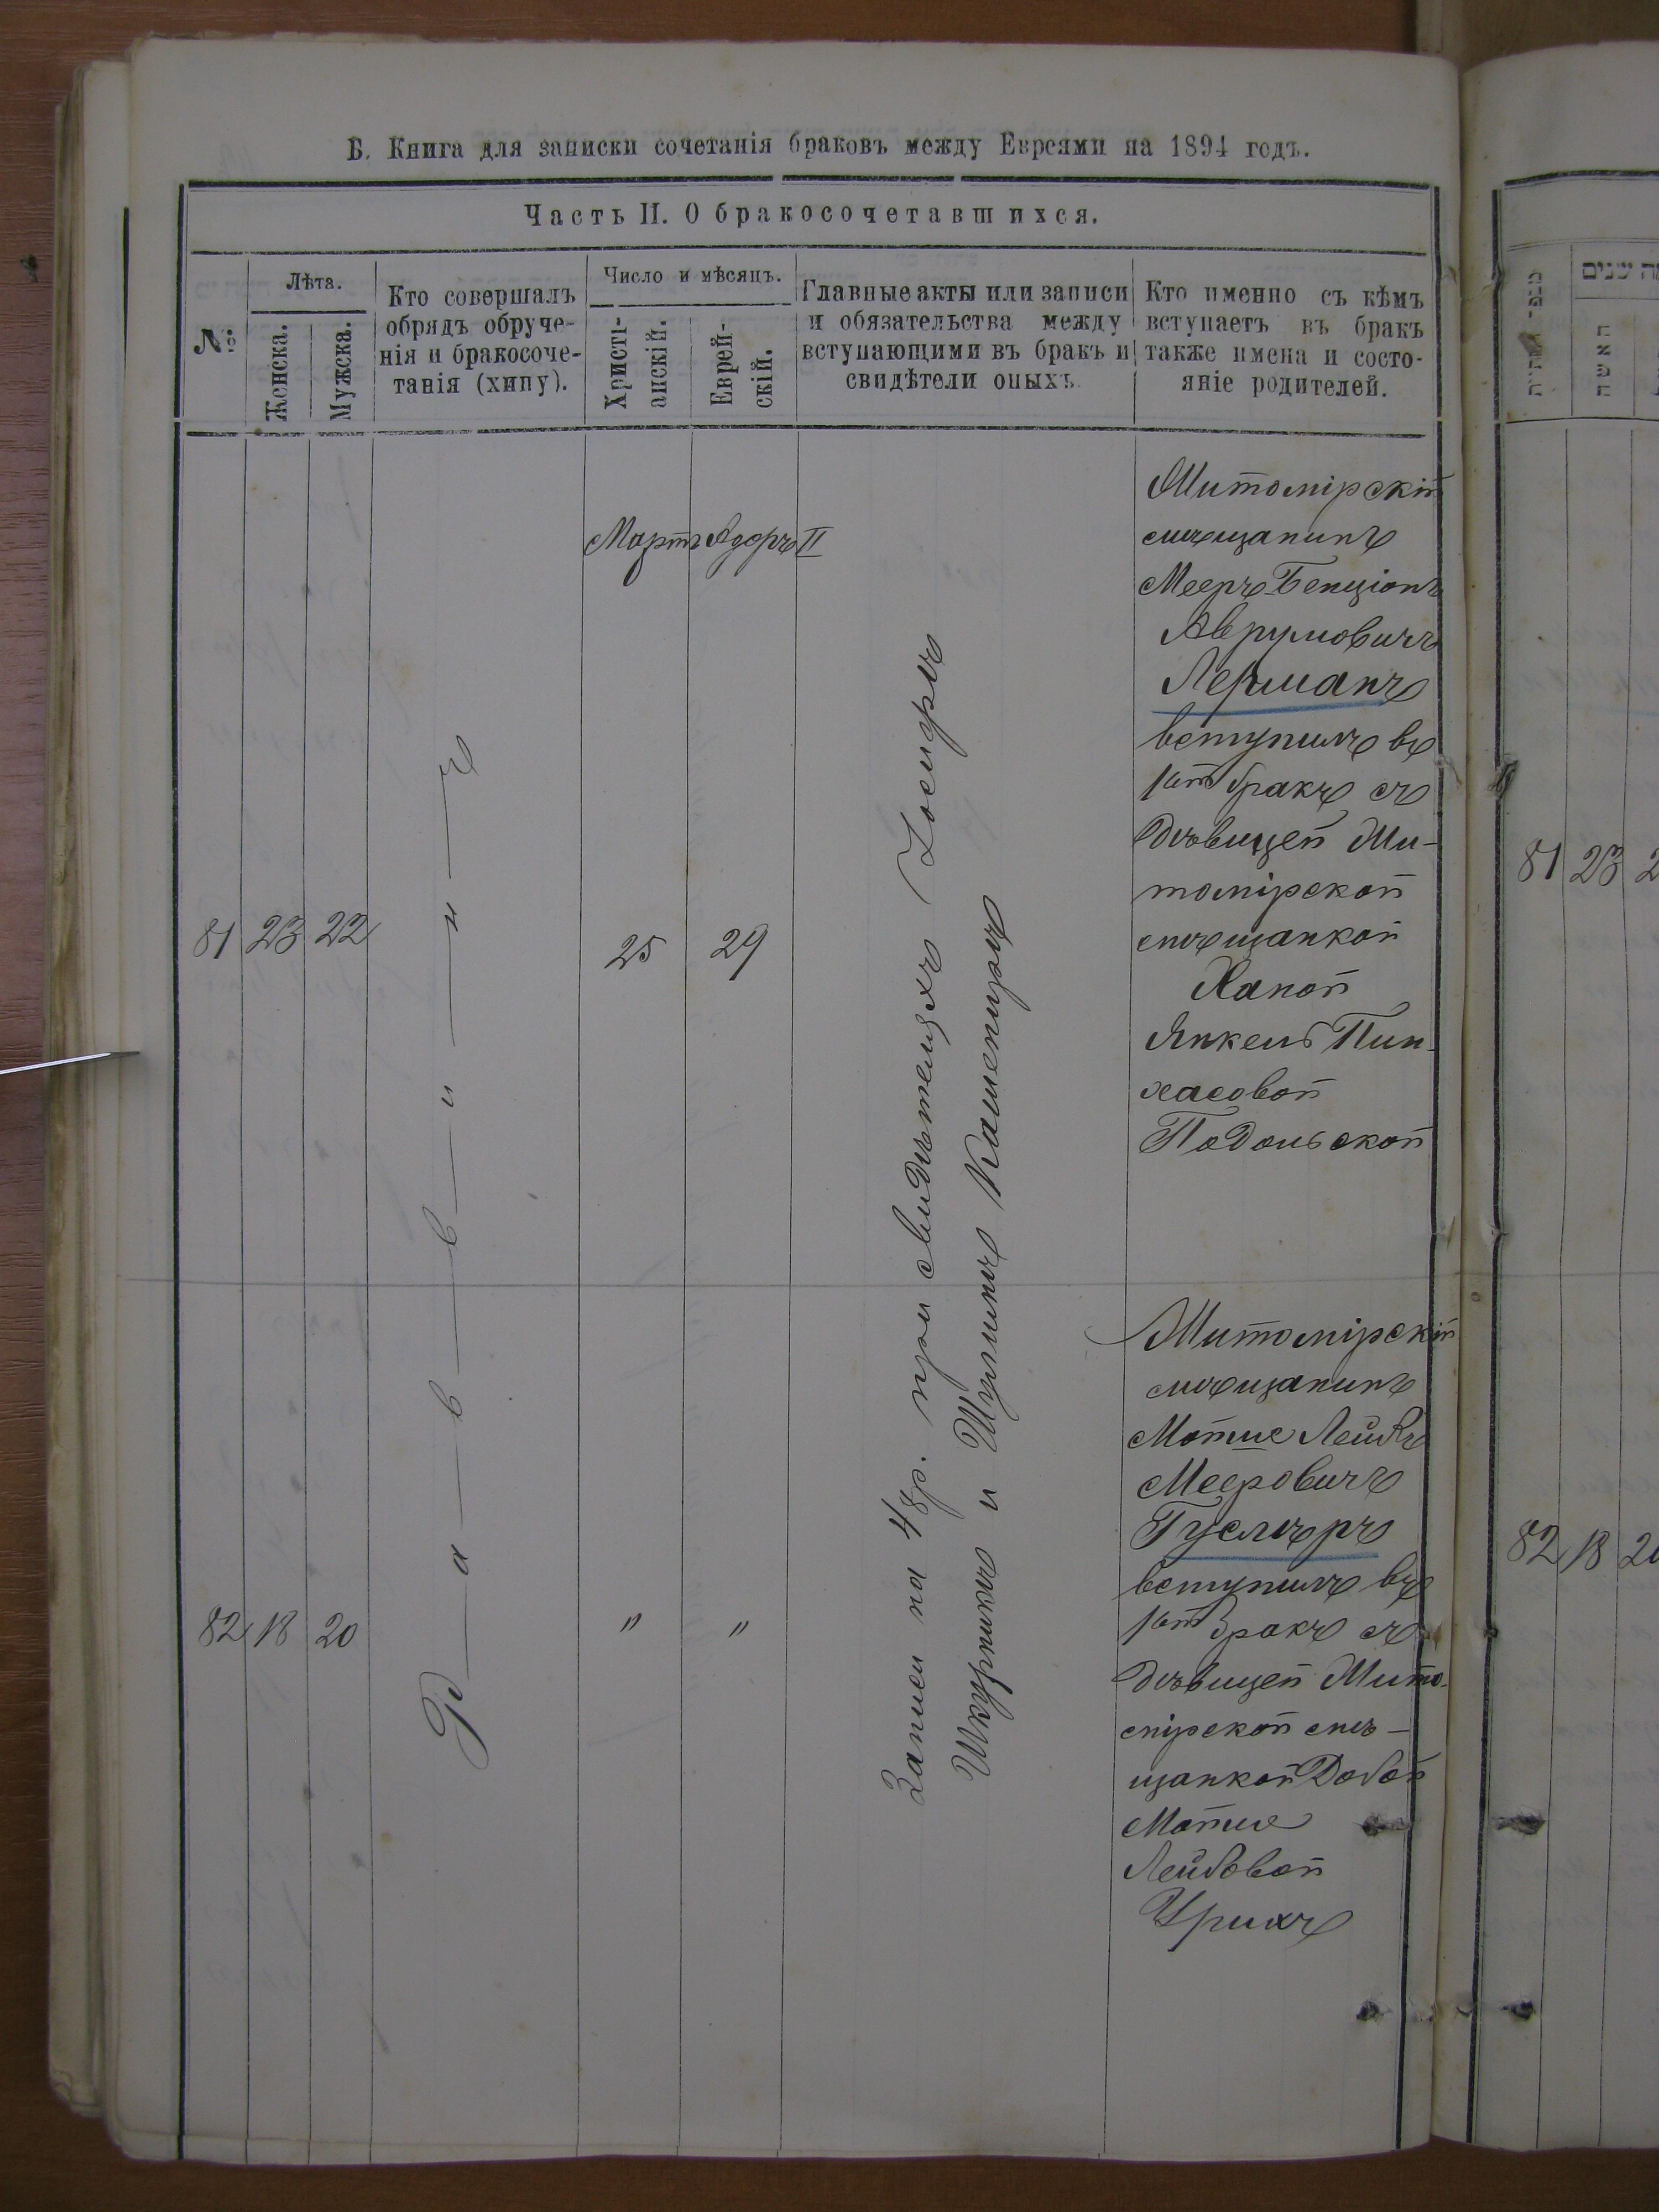 Б. Книга для записки сочетанія браковъ между Евреями на 1894 годъ.
Часть II. О бракосочетавшихся.
№
Лѣта.
Женска.
Мужска.
Кто совершалъ
обрядъ обруче-
нія и бракосоче-
танія (хипу).
Число и мѣсяцъ.
Христі-
анскій.
Еврей-
скій.
Главные акты или записи
и обязательства между
вступающими въ бракъ и
свидѣтели оныхъ.
Кто именно съ кѣмъ
вступаетъ въ бракъ
также имена и состо-
яніе родителей.
Мартъ Адоръ II
81 23 22
25 29
Р—а—в—в—и—н—ъ
Записи на 48 р. при свидѣтеляхъ
Шкурникъ и Шулимъ
Житомірскій
мѣщанинъ
Мееръ-Бенціонъ
Аврумовичъ
Лерманъ
вступилъ въ
1ый бракъ съ
дѣвицей Жи-
томірской
мѣщанкой
Ханой
Янкель Пин-
хасовой
Подольской
82 18 20
" "
Житомірскій
мѣщанинъ
Мотше Лейбъ
Мееровичъ
вступилъ въ
1ый бракъ съ
дѣвицей Жито-
мірской мѣ-
щанкой Добой
Мотше
Лейбовой
81 23 2
82 18 20